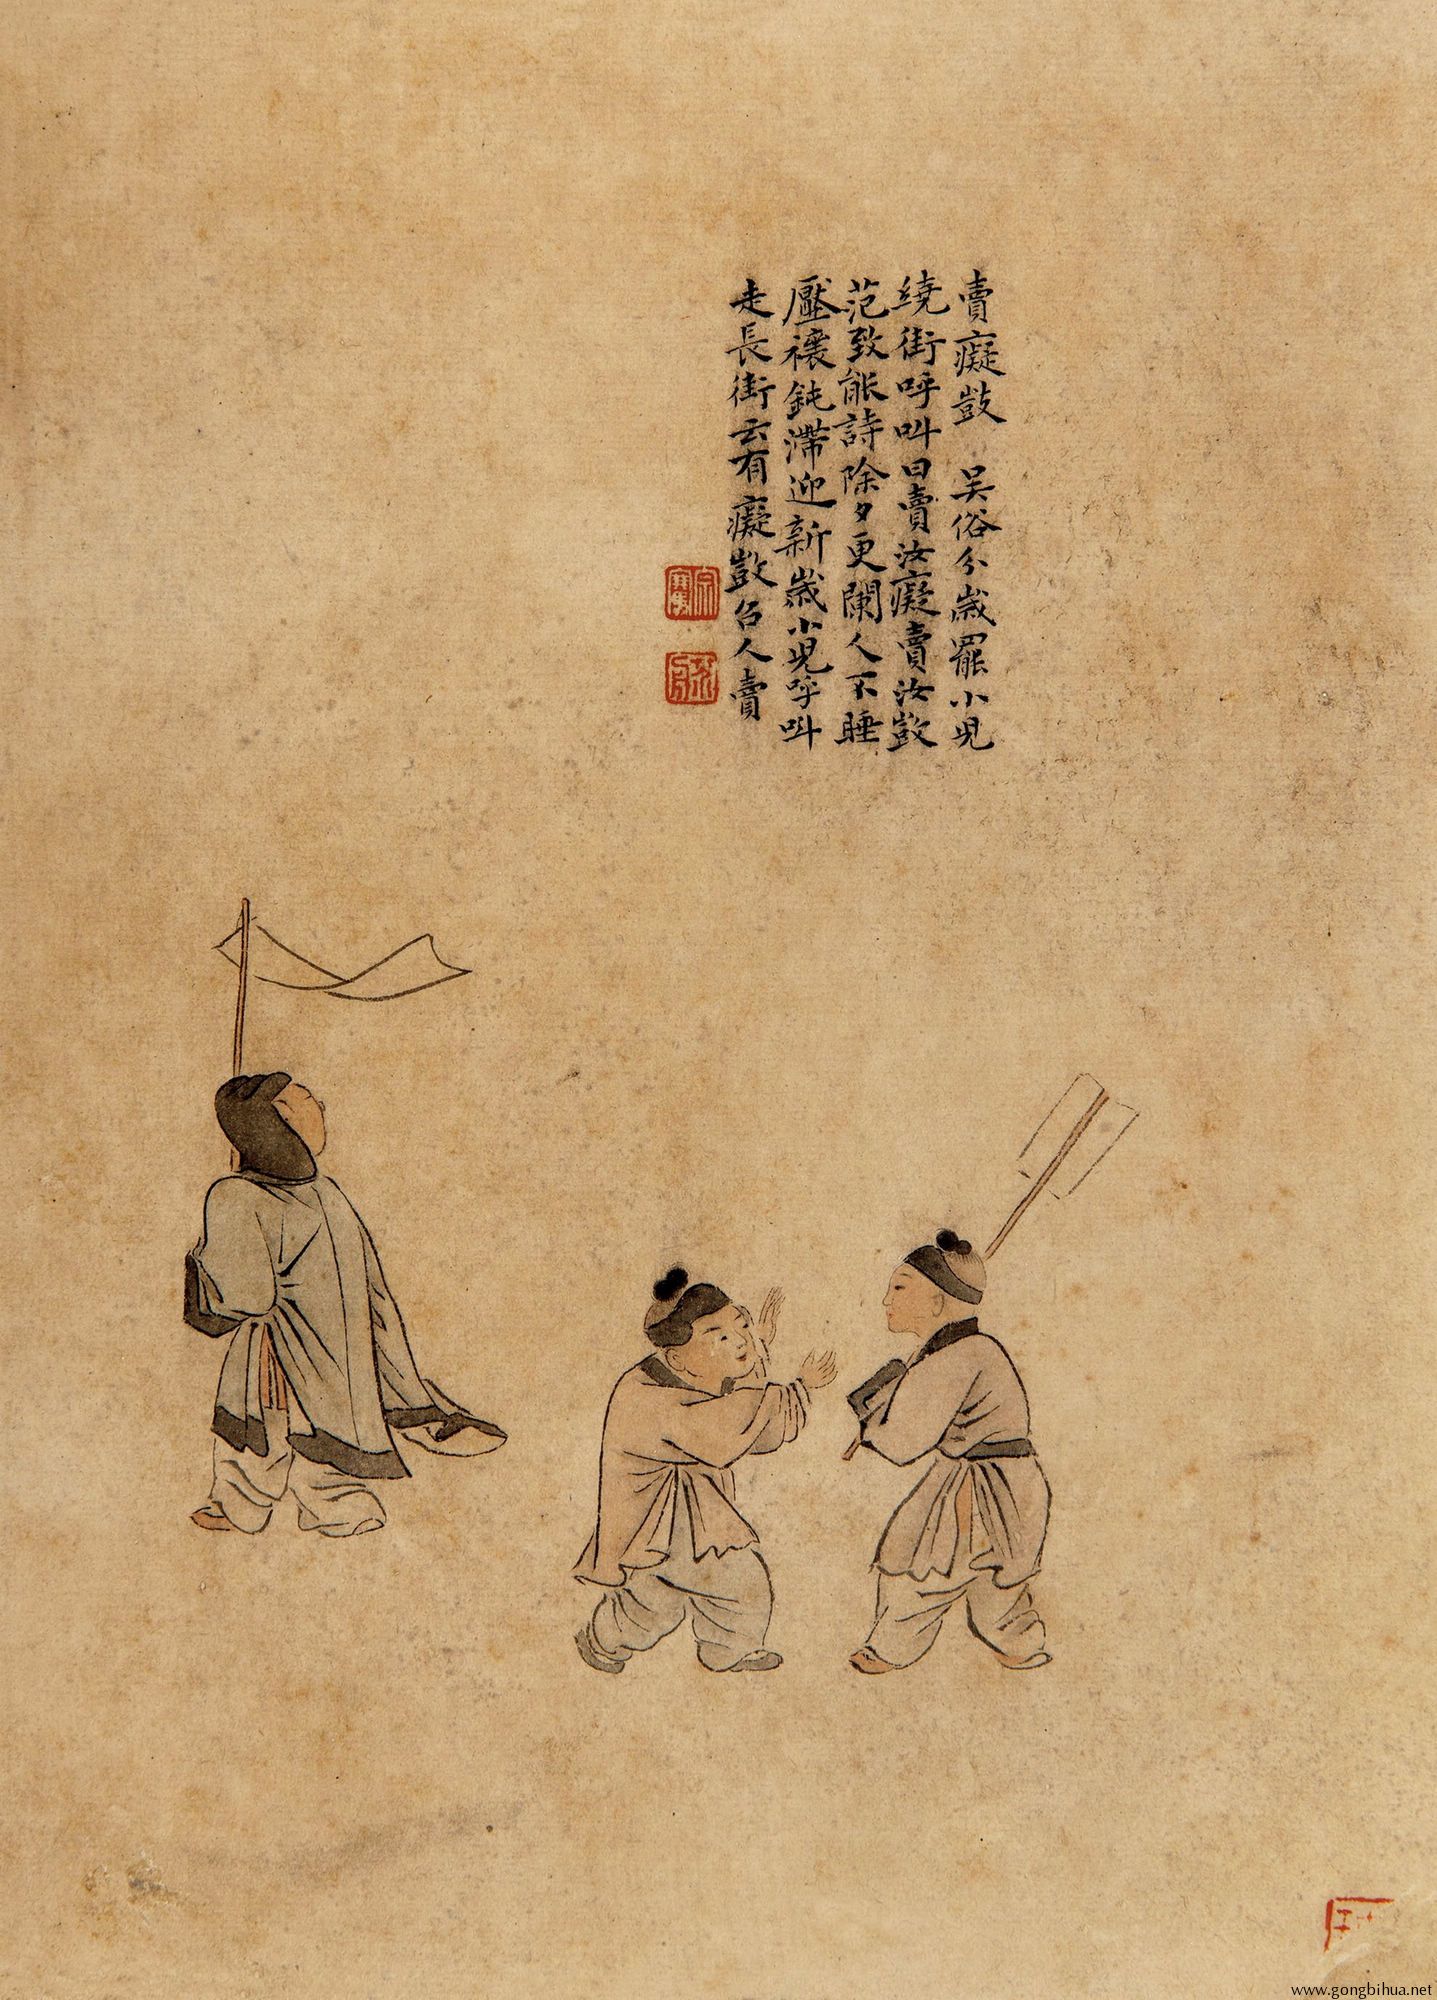 賣癡敳 吳俗分歲罷小兒
繞街呼叫曰賣汝癡賣汝敳
范致能詩除夕更闌人不睡
壓禳鈍滯迎新歲小兒呼叫
走長街云有癡敳召人賣
www.gongbihua.net